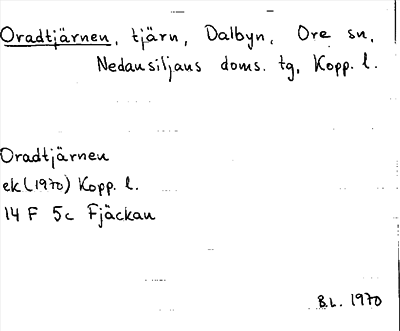 Oradtjärnen, tjärn, Dalbyn, Ore sn,
Nedansiljans doms. tg, Kopp. l.
Oradtjärnen
ek (1970) Kopp. l.
14 F 5c Fjäckan
B.L. 1970